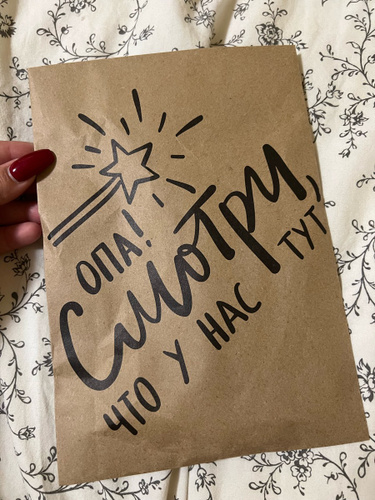 ОПА!
Смотри,
ЧТО У НАС ТУТ